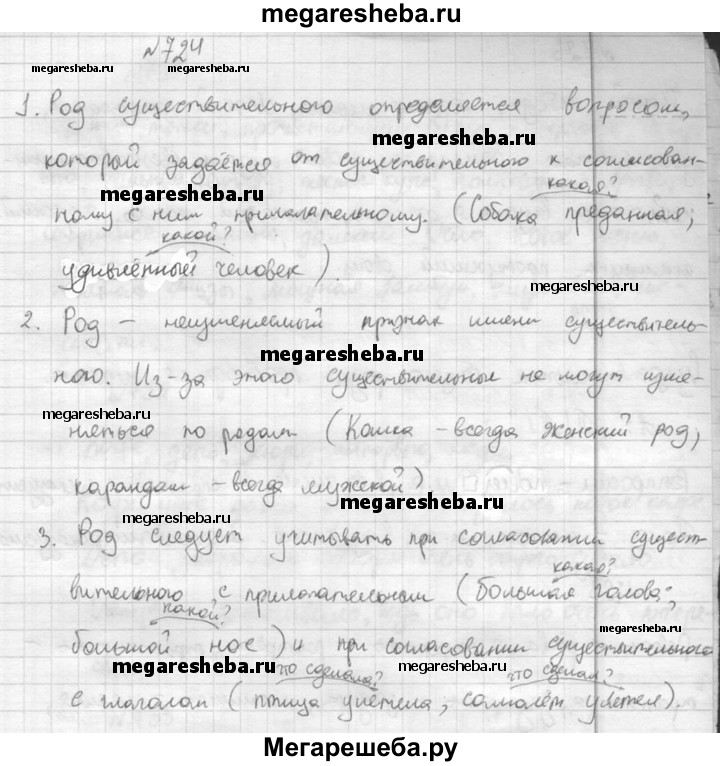 megaresheba.ru
№724
megaresheba.ru
megaresheba.ru
megaresheba.ru
1. Род существительного определяется вопросом,
megaresheba.ru
который задаётся от существительного к согласован-
какая?
megaresheba.ru
ному с ним прилагательному. (Собака преданная;
какой?
удивлённый человек).
megaresheba.ru
2. Род – неизменяемый признак имени существитель-
megaresheba.ru
ного. Из-за этого существительные не могут изме-
megaresheba.ru
няться по родам (Кошка – всегда женский род,
карандаш – всегда мужской)
megaresheba.ru
megaresheba.ru
3. Род следует учитывать при согласовании сущест-
какая?
вительного с прилагательным (большая голова;
какой?
большой нос) и при согласовании существительного
megaresheba.ru
megaresheba.ru
что сделала? что сделал?
с глаголом (птица улетела, самолёт улетел).
megaresheba.ru
Мегарешеба.ру